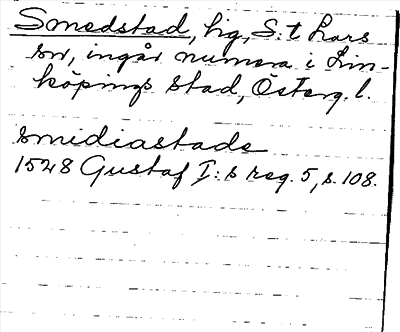 Smedstad, lig, S:t Lars
sn, ingår numera i Lin-
köpings stad, Österg. l.
smidiastade
1528 Gustaf I:s reg. 5, s. 108.